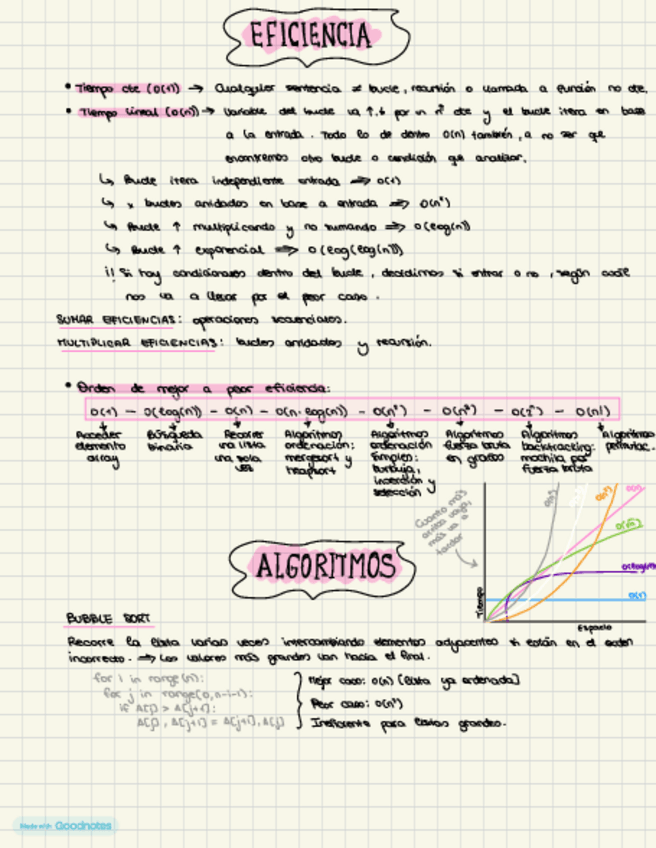 EFICIENCIA
• Tiempo cte (O(1)) → Cualquier sentencia ≠ bucle, recursión o llamada a función no cte.
• Tiempo lineal (O(n)) → Variable del bucle va ↑,↓ por un nº cte y el bucle itera en base
a la entrada. Todo lo de dentro O(n) también, a no ser que
encontremos otro bucle o condición que analizar.
↳ Bucle itera independiente entrada ⟹ O(1)
↳ x bucles anidados en base a entrada ⟹ O(nˣ)
↳ Bucle ↑ multiplicando y no sumando ⟹ O(log(n))
↳ Bucle ↑ exponencial ⟹ O(log(log(n)))
¡! Si hay condicionales dentro del bucle, decidimos si entrar o no, según cuál
nos va a llevar por el peor caso.
SUMAR EFICIENCIAS: operaciones secuenciales.
MULTIPLICAR EFICIENCIAS: bucles anidados y recursión.
• Orden de mejor a peor eficiencia:
O(1) - O(log(n)) - O(n) - O(n·log(n)) - O(n²) - O(n³) - O(2ⁿ) - O(n!)
Acceder elemento array
Búsqueda binaria
Recorrer una lista una sola vez
Algoritmos ordenación: mergesort y heapsort
Algoritmos ordenación simples: burbuja, inserción y selección
Algoritmos fuerza bruta en grafos
Algoritmos backtracking: mochila por fuerza bruta
Algoritmos permutac.
Cuanto más
arriba vaya,
más va a
tardar
O(n)
O(log(n))
O(1)
Tiempo
Espacio
ALGORITMOS
BUBBLE SORT
Recorre la lista varias veces intercambiando elementos adyacentes si están en el orden
incorrecto. → Los valores más grandes van hacia el final.
for i in range(n):
for j in range(0,n-i-1):
if A[j] > A[j+1]:
A[j], A[j+1] = A[j+1], A[j]
Mejor caso: O(n) [lista ya ordenada]
Peor caso: O(n²)
Ineficiente para listas grandes.
Made with Goodnotes